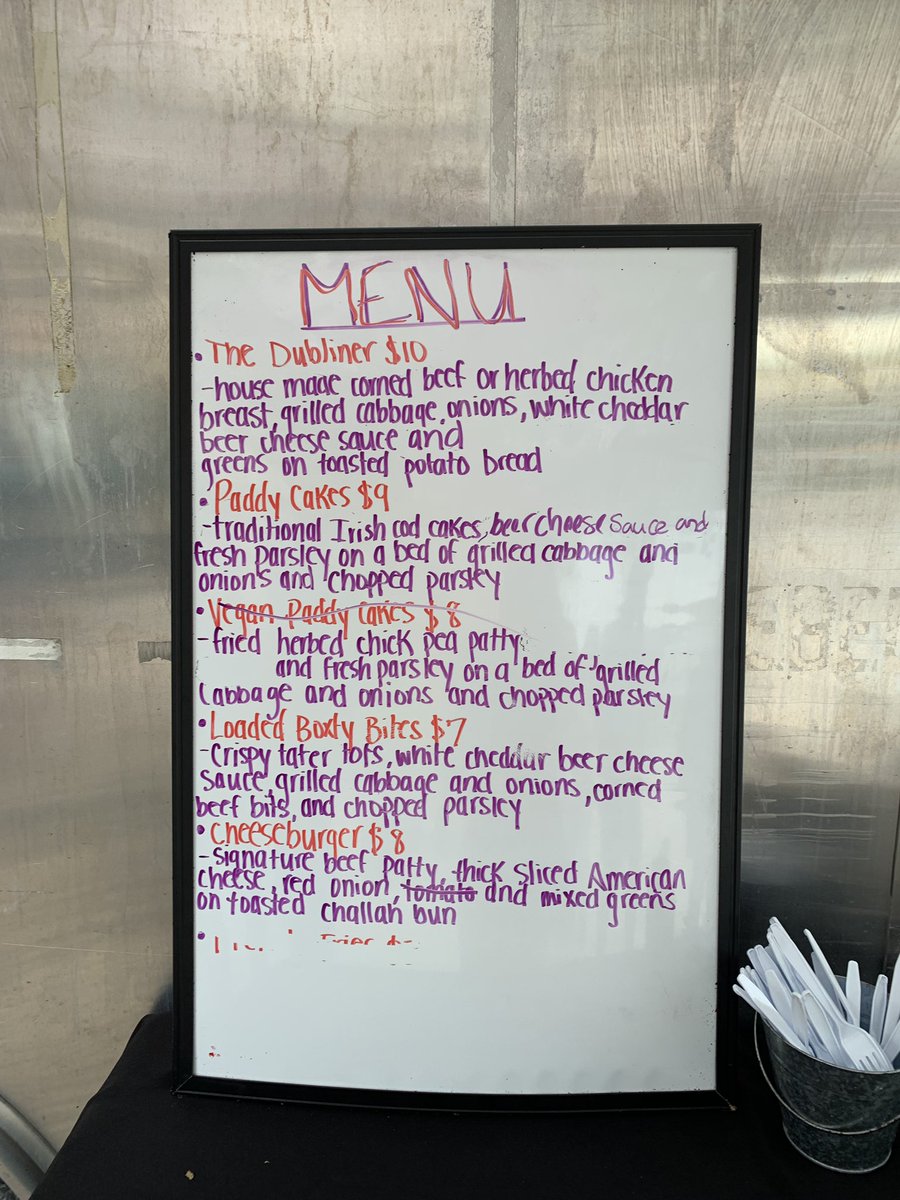 MENU
• The Dubliner $10
-house made corned beef or herbed chicken
breast, grilled cabbage, onions, white cheddar
beer cheese sauce and
greens on toasted potato bread
• Paddy Cakes $9
-traditional Irish cod cakes, beer cheese sauce and
fresh parsley on a bed of grilled cabbage and
onions and chopped parsley
• Vegan Paddy Cakes $8
-fried herbed chick pea patty
and fresh parsley on a bed of grilled
cabbage and onions and chopped parsley
• Loaded Boxty Bites $7
-Crispy tater tots, white cheddar beer cheese
sauce, grilled cabbage and onions, corned
beef bits, and chopped parsley
• Cheeseburger $8
-signature beef patty, thick sliced American
cheese, red onion, tomato and mixed greens
on toasted challah bun